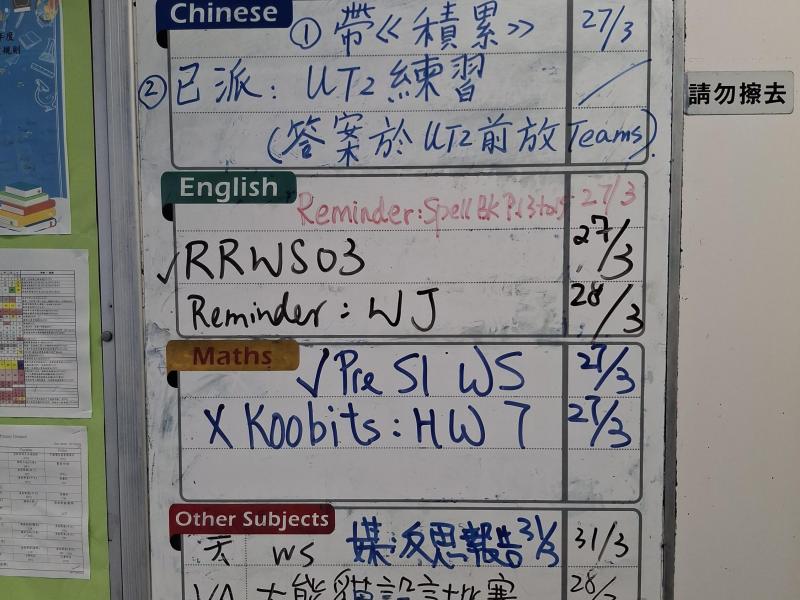 Chinese
① 帶《積累》 27/3
② 已派: UT2 練習
(答案於 UT2 前放 Teams)
請勿擦去
English
Reminder: Spell BK 27/3
✓ RRWS03 27/3
Reminder: WJ 28/3
Maths
✓ Pre S1 WS 27/3
X Koobits: HW 7 27/3
Other Subjects
WS 媒:反思報告 31/3 31/3
VA 大熊貓設計比賽 28/3